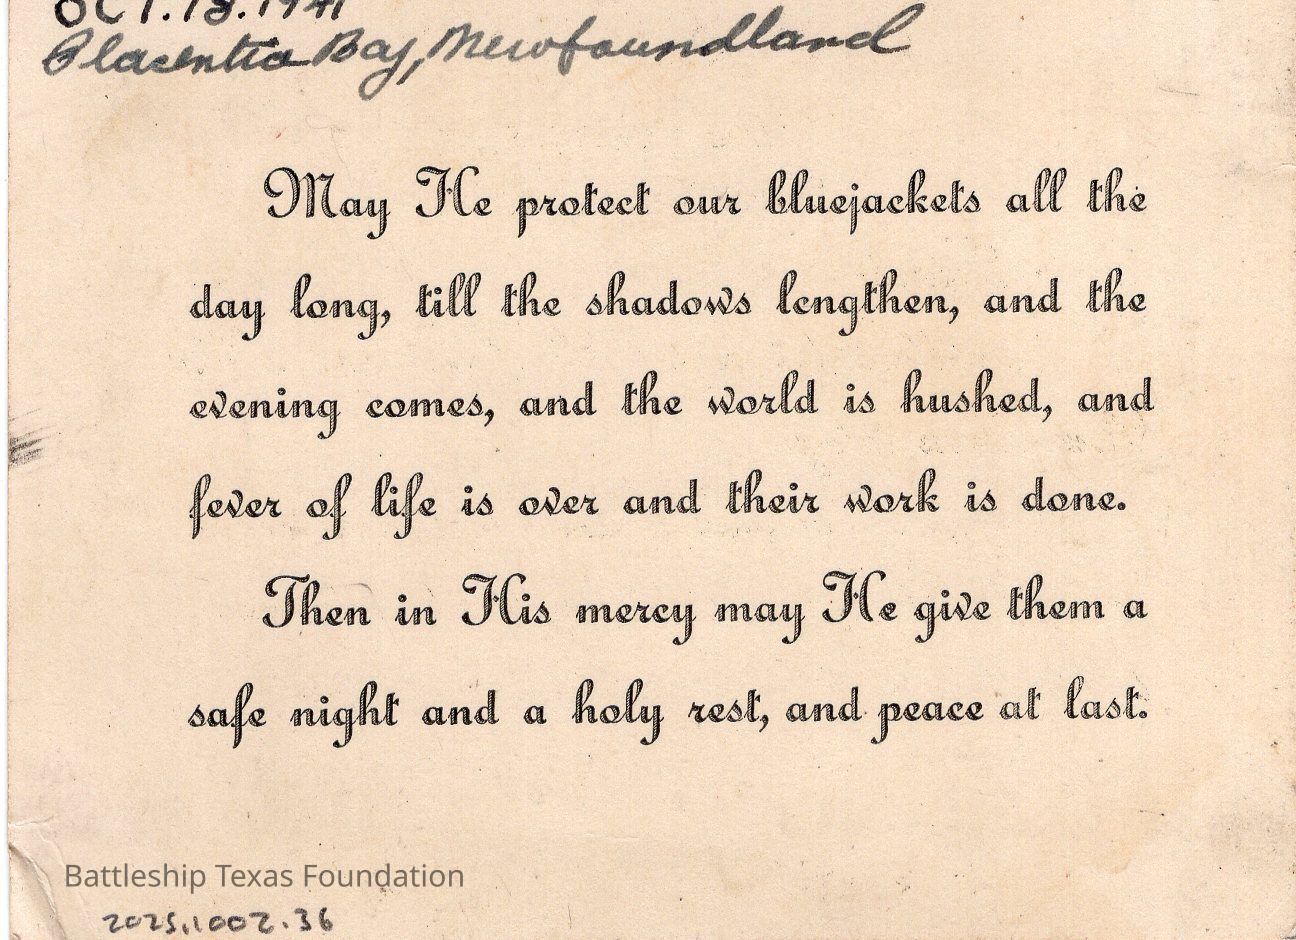 OCT.13.1941
Placentia Bay, Newfoundland
May He protect our bluejackets all the
day long, till the shadows lengthen, and the
evening comes, and the world is hushed, and
fever of life is over and their work is done.
Then in His mercy may He give them a
safe night and a holy rest, and peace at last.
Battleship Texas Foundation
2025.1002.36